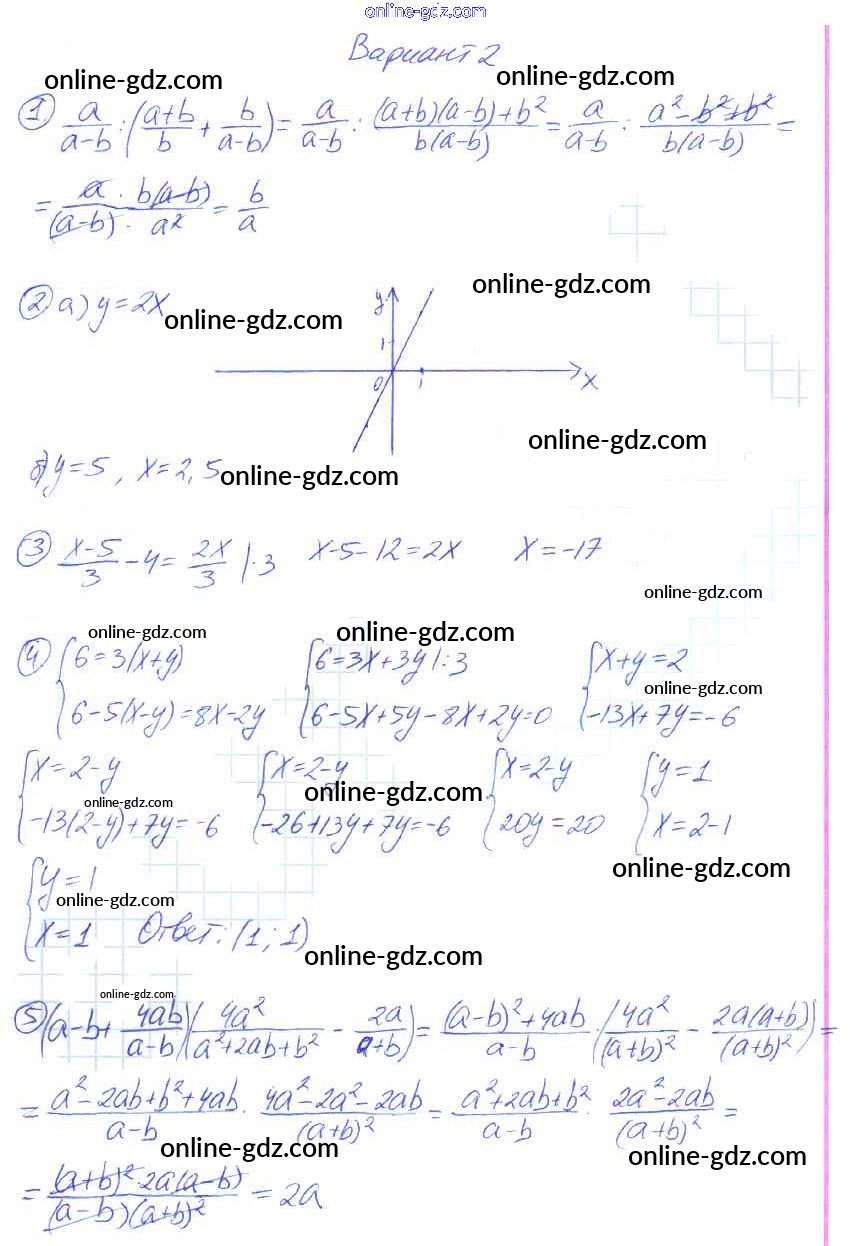 online-gdz.com
Вариант 2
online-gdz.com online-gdz.com
① a/(a-b) : ((a+b)/b + b/(a-b)) = a/(a-b) : ((a+b)(a-b)+b²)/(b(a-b)) = a/(a-b) : (a²-b²+b²)/(b(a-b)) =
= (a · b(a-b))/((a-b) · a²) = b/a
online-gdz.com
② а) y=2x
online-gdz.com
y
1
0 1 x
online-gdz.com
б) y=5, x=2,5
online-gdz.com
③ (x-5)/3 - 4 = 2x/3 |·3 x-5-12=2x x=-17
online-gdz.com
online-gdz.com online-gdz.com
④ {6=3(x+y) {6=3x+3y |:3 {x+y=2
online-gdz.com
6-5(x-y)=8x-2y 6-5x+5y-8x+2y=0 -13x+7y=-6
{x=2-y {x=2-y {x=2-y {y=1
online-gdz.com online-gdz.com
-13(2-y)+7y=-6 -26+13y+7y=-6 20y=20 x=2-1
online-gdz.com
{y=1
online-gdz.com
x=1 Ответ: (1; 1)
online-gdz.com
online-gdz.com
⑤ (a-b+4ab/(a-b))(4a²/(a²+2ab+b²) - 2a/(a+b)) = ((a-b)²+4ab)/(a-b) · (4a²/(a+b)² - 2a(a+b)/(a+b)²) =
= (a²-2ab+b²+4ab)/(a-b) · (4a²-2a²-2ab)/(a+b)² = (a²+2ab+b²)/(a-b) · (2a²-2ab)/(a+b)² =
online-gdz.com online-gdz.com
= ((a+b)² 2a(a-b))/((a-b)(a+b)²) = 2a